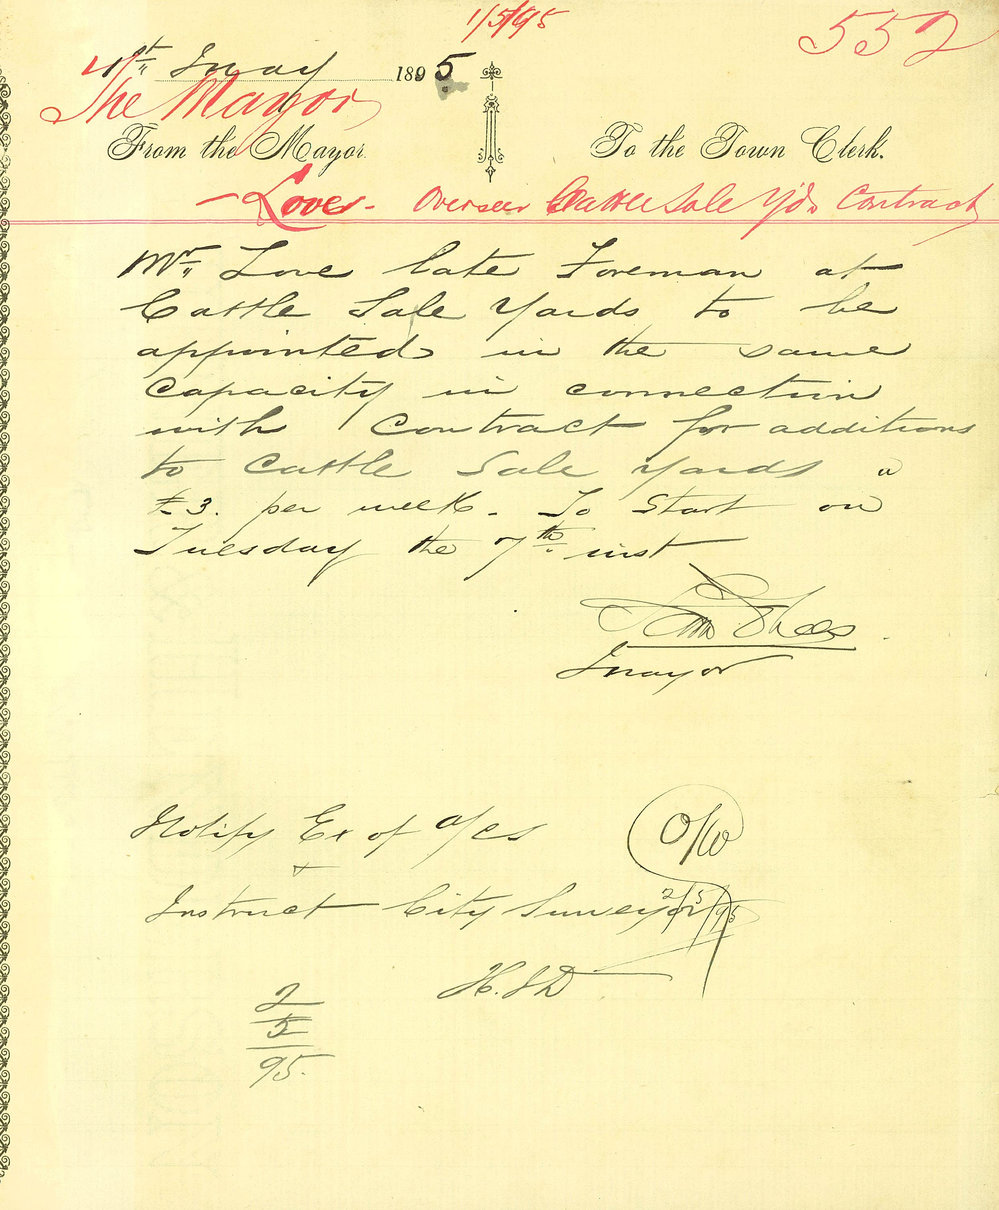 1/5/95
552
1st May 1895
The Mayor
From the Mayor.
To the Town Clerk.
- Love - Overseer Cattle Sale Yds Contract
Mr. Love late Foreman at
Cattle Sale Yards to be
appointed in the same
capacity in connection
with Contract for additions
to Cattle Sale Yards a
£3. per week. To Start on
Tuesday the 7th inst
Mayor
Notify Ex of a/cs
+
Instruct City Surveyor
O/W
2/5/95
H.J.D
2
5
95.